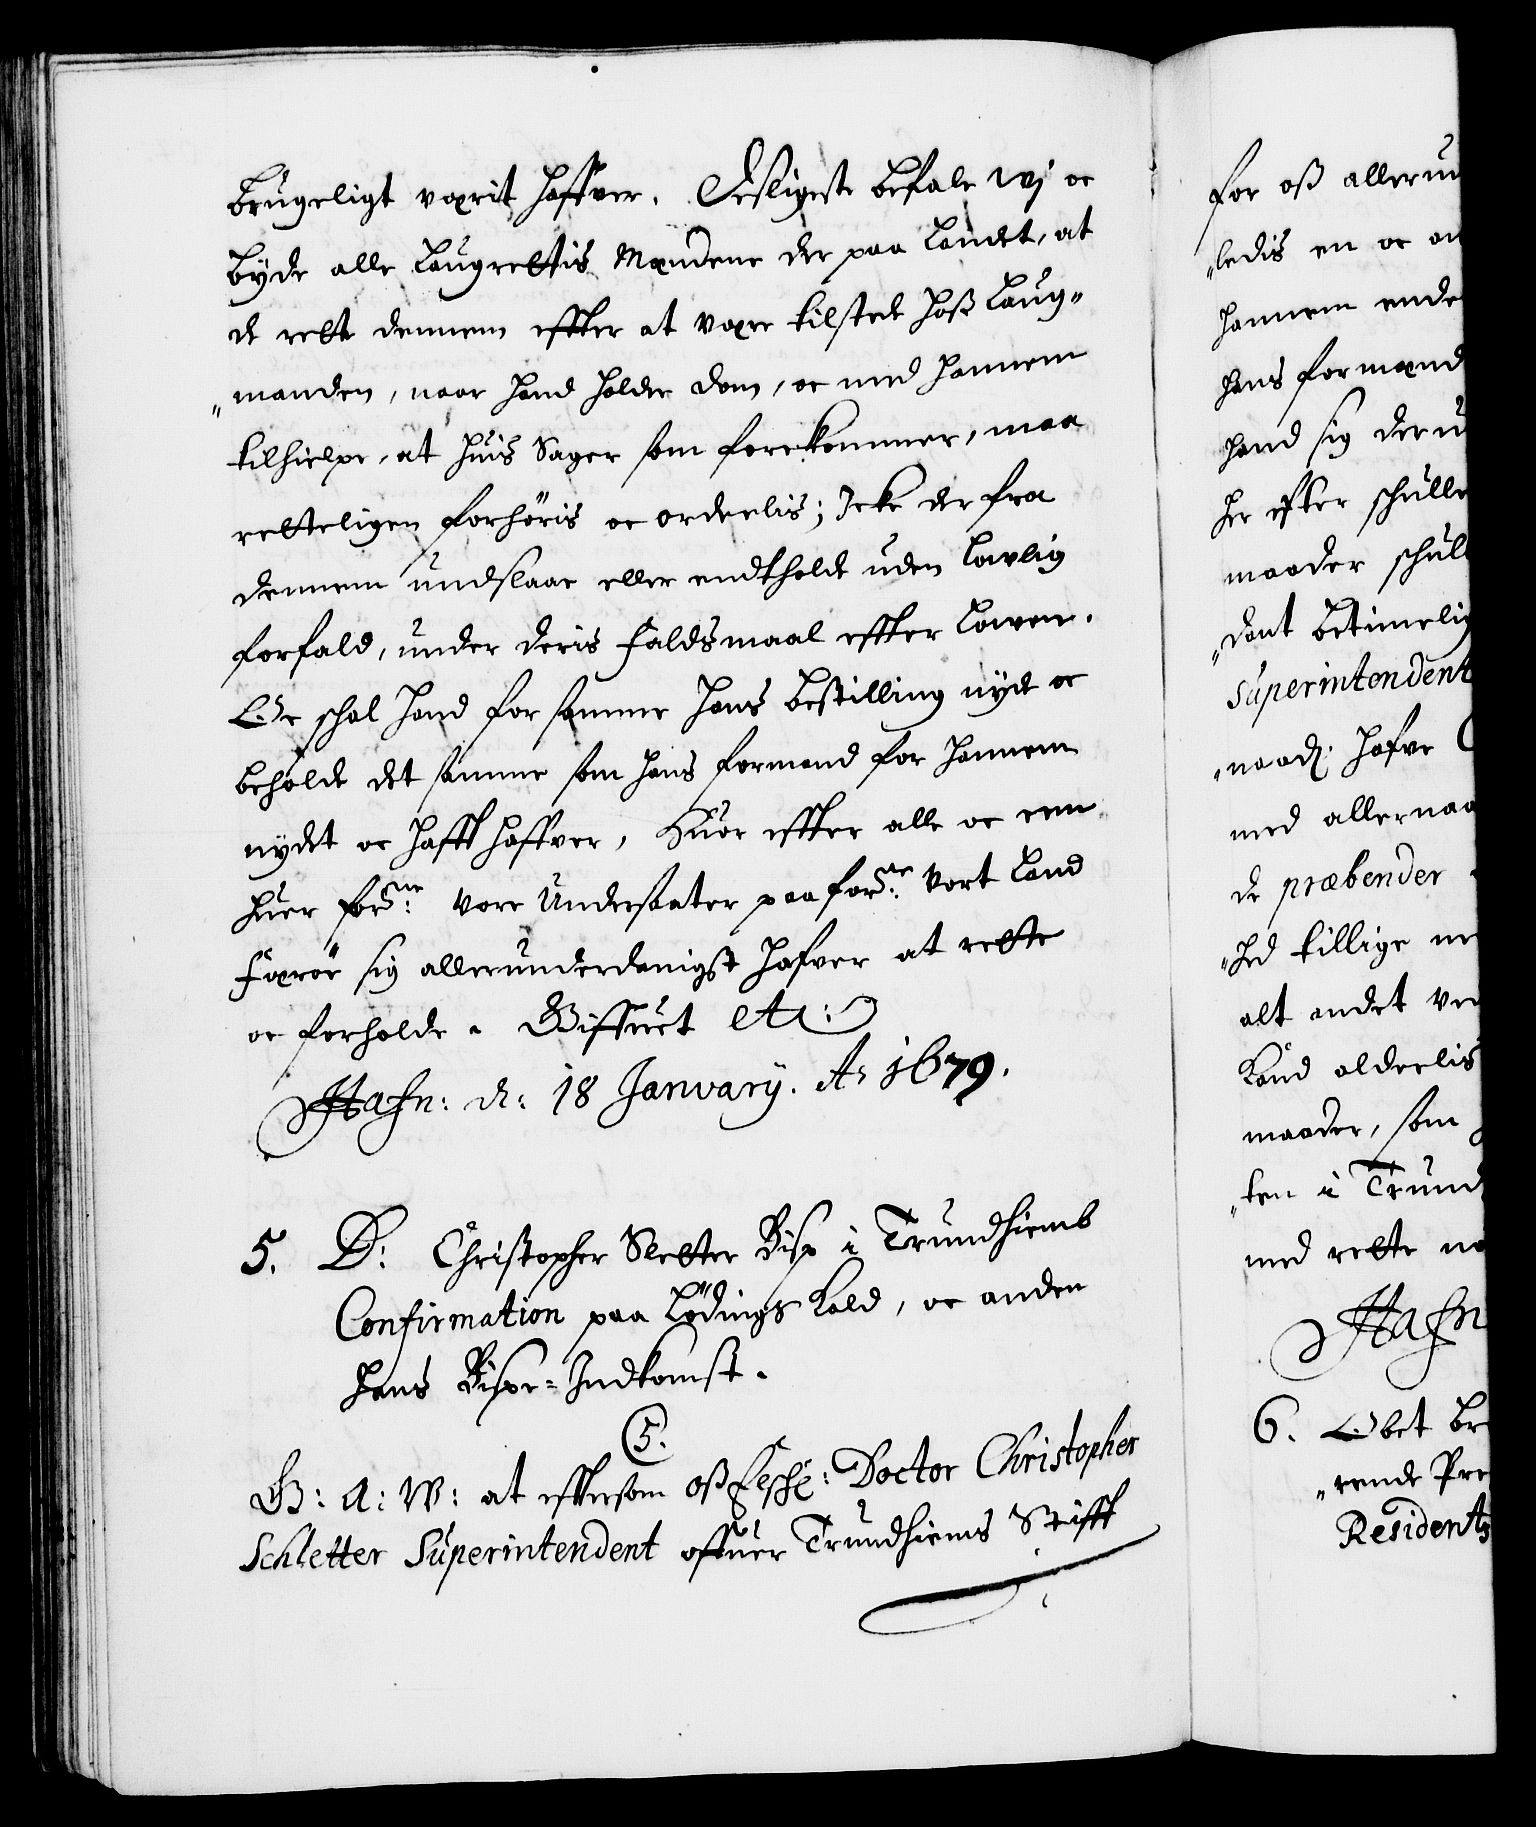 brugeligt værit haffver. Desligeste befale Wj oc
byde alle Laugrettis Mændene der paa Landet, at
de rette dennem effter at være tilstede hoß Laug¬
manden, naar hand holder dom, oc med hannem
tilhielpe, at huis Sager som forekommer, maa
retteligen forhöris oc ordeelis; Icke der fra
dennem undslaae eller endtholde uden lovlig
forfald, under deris Faldsmaal effter Lowen.
Oc schal hand for samme hans bestilling nyde oc
beholde det samme som hans formand for hannem
nydet oc hafft haffver, Huor effter alle oc een
huer forne: vore Undersaater paa forne: Vort Land
Færöe sig allerunderdanigst hafver at rette
oc forholde. Giffuet etc:
Hafn: d: 18 Janvarij. Ao 1679.
5. D: Christopher Sletter Bisp i Trundhiemb
Confirmation paa Lödings Kald, oc anden
hans Bispe-Indkomst.
(5.
G: A: W: at eftersom oß Doctor Christopher
Schletter Superintendent offuer Trundhiems Stifft
for oß allerun
ledis en oc an
hannem ende
hans formænd
hand sig deru
her efter schulle
maader schul
dant betimelig
Superintendent
naad: hafve
med allernaa
de præbender
hed tillige me
alt andet ve
Kand alderlis
maader, som
ten i Trund
med rette no
Hafn
6. Obet br
rende Pre
Residents